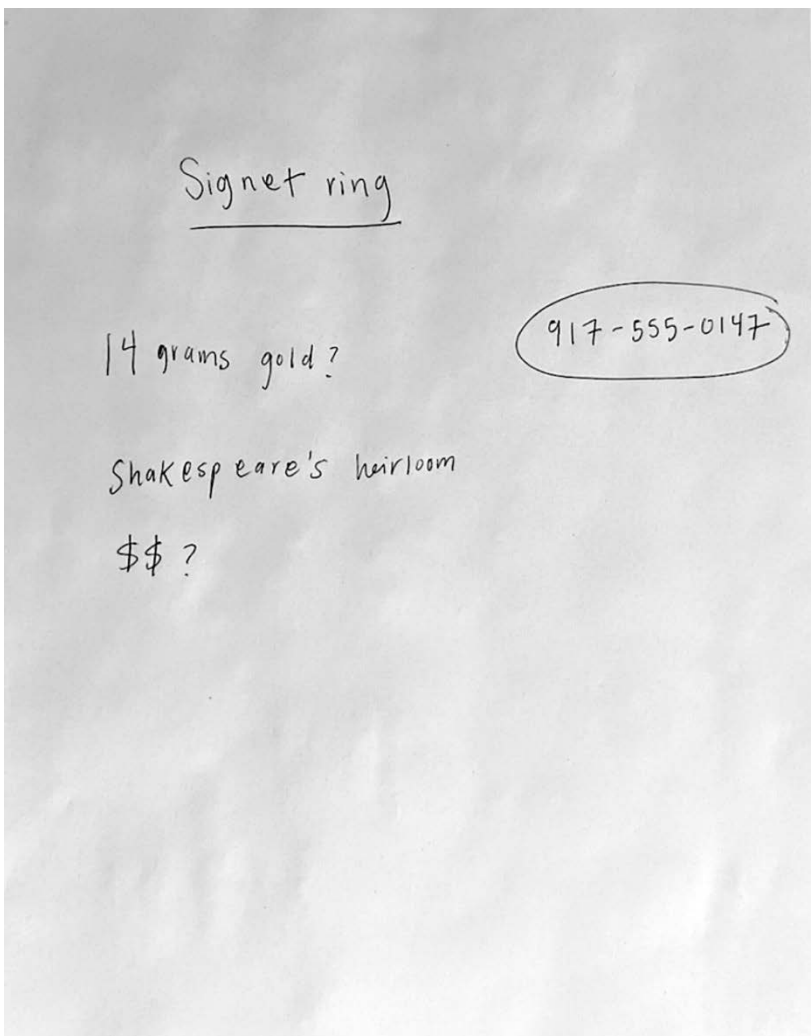 Signet ring
14 grams gold?
917-555-0147
Shakespeare's heirloom
$$?